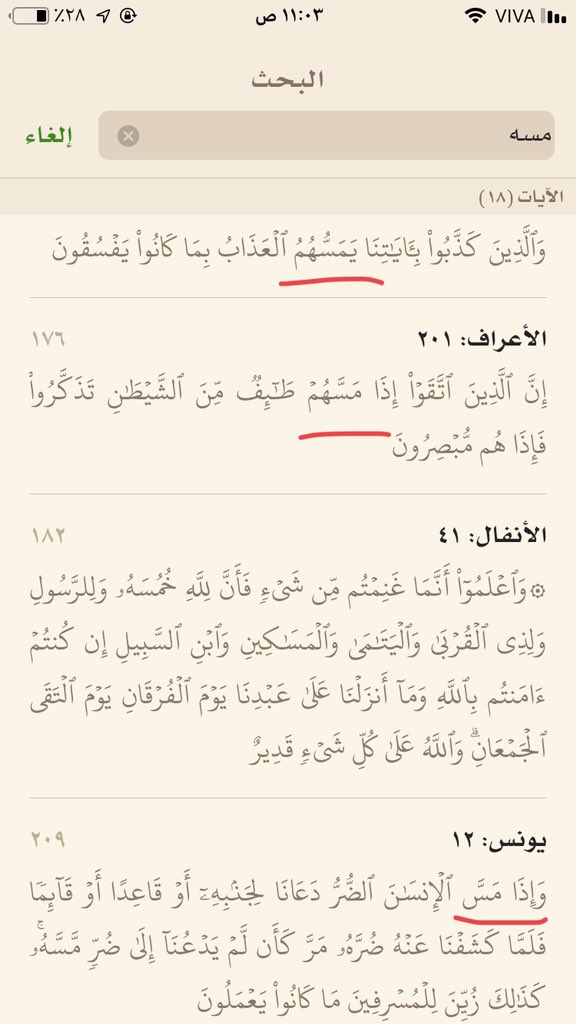 ١١:٠٣ ص ٪٢٨ VIVA
البحث
مسه إلغاء
الآيات (١٨)
وَٱلَّذِينَ كَذَّبُوا۟ بِـَٔايَـٰتِنَا يَمَسُّهُمُ ٱلْعَذَابُ بِمَا كَانُوا۟ يَفْسُقُونَ
الأعراف: ٢٠١ ١٧٦
إِنَّ ٱلَّذِينَ ٱتَّقَوْا۟ إِذَا مَسَّهُمْ طَـٰٓئِفٌ مِّنَ ٱلشَّيْطَـٰنِ تَذَكَّرُوا۟
فَإِذَا هُم مُّبْصِرُونَ
الأنفال: ٤١ ١٨٢
۞وَٱعْلَمُوٓا۟ أَنَّمَا غَنِمْتُم مِّن شَىْءٍ فَأَنَّ لِلَّهِ خُمُسَهُۥ وَلِلرَّسُولِ
وَلِذِى ٱلْقُرْبَىٰ وَٱلْيَتَـٰمَىٰ وَٱلْمَسَـٰكِينِ وَٱبْنِ ٱلسَّبِيلِ إِن كُنتُمْ
ءَامَنتُم بِٱللَّهِ وَمَآ أَنزَلْنَا عَلَىٰ عَبْدِنَا يَوْمَ ٱلْفُرْقَانِ يَوْمَ ٱلْتَقَى
ٱلْجَمْعَانِ ۗ وَٱللَّهُ عَلَىٰ كُلِّ شَىْءٍ قَدِيرٌ
يونس: ١٢ ٢٠٩
وَإِذَا مَسَّ ٱلْإِنسَـٰنَ ٱلضُّرُّ دَعَانَا لِجَنۢبِهِۦٓ أَوْ قَاعِدًا أَوْ قَآئِمًا
فَلَمَّا كَشَفْنَا عَنْهُ ضُرَّهُۥ مَرَّ كَأَن لَّمْ يَدْعُنَآ إِلَىٰ ضُرٍّ مَّسَّهُۥ ۚ
كَذَٰلِكَ زُيِّنَ لِلْمُسْرِفِينَ مَا كَانُوا۟ يَعْمَلُونَ